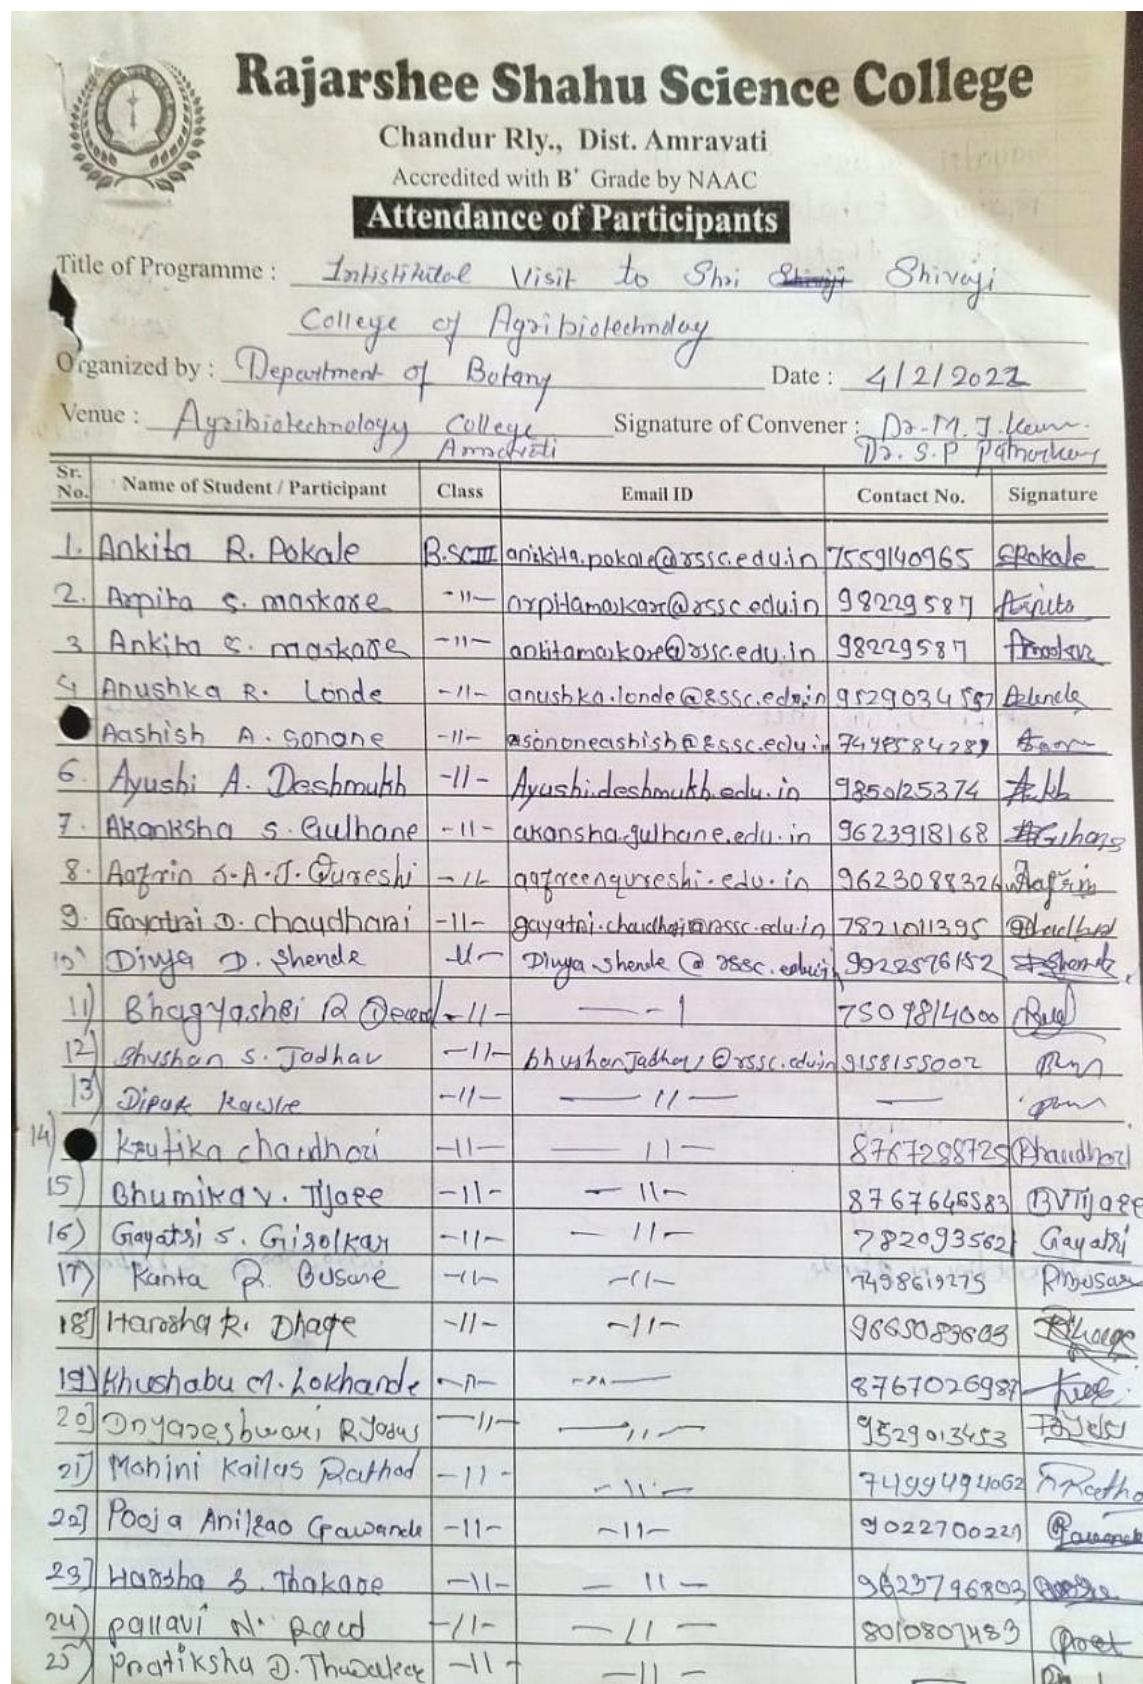 Rajarshee Shahu Science College
Chandur Rly., Dist. Amravati
Accredited with B+ Grade by NAAC
Attendance of Participants
Title of Programme : Intistitutal Visit to Shri Shivaji
College of Agribiotechnology
Organized by : Department of Botany Date : 4/2/2022
Venue : Agribiotechnology College Signature of Convener : Dr. M. J.
Amravati Dr. S. P
Sr. No. Name of Student / Participant Class Email ID Contact No. Signature
1. Ankita R. Pokale B.SC III ankita.pokale@rssc.edu.in 7559140965 SRokale
2. Arpita S. maskare -11- arpitamaskare@rssc.edu.in 98229587 Arpita
3 Ankita S. maskare -11- ankitamaskare@rssc.edu.in 98229587
4 Anushka R. Londe -11- anushka.londe@rssc.edu.in 9529034557
Aashish A. Sonone -11- asononeashish@rssc.edu.in
6. Ayushi A. Deshmukh -11- Ayushi.deshmukh.edu.in 9850125374
7. Akanksha S. Gulhane -11- akansha.gulhane.edu.in 9623918168
8. Aafrin S.A.J. Qureshi -11- aafreenqureshi.edu.in 9623088326 Aafrin
9. Gayatri D. Chaudhari -11- gayatri.chaudhari@rssc.edu.in 7821011395
10 Divya D. Shende -11- Divya.shende@rssc.edu.in 9922576152
11) Bhagyashri R -11- 7509814000
12) Bhushan S. Jadhav -11- 9158155002
13) Dipak Kawle -11- -11- —
14) Krutika chaudhari -11- -11- 8767288725 Khaudhari
15) Bhumika V. Tijare -11- -11- 8767646583 BVTijare
16) Gayatri S. Girolkar -11- -11- 782093562 Gayatri
17) Kanta R. Busare -11- -11- 7498619275
18] Harsha R. Dhage -11- -11- 9665083603
19) Khushabu M. Lokhande -11- -11- 8767026987
20] Dnyaneshwari R. -11- -11- 9529013453
21) Mohini Kailas Rathod -11- -11- 7499494062
22] Pooja Anilrao Gawande -11- -11- 9022700221
23] Harsha S. Thakare -11- -11- 9623796803
24) Pallavi N. -11- -11- 8010807483
25) Pratiksha D. -11- -11- —